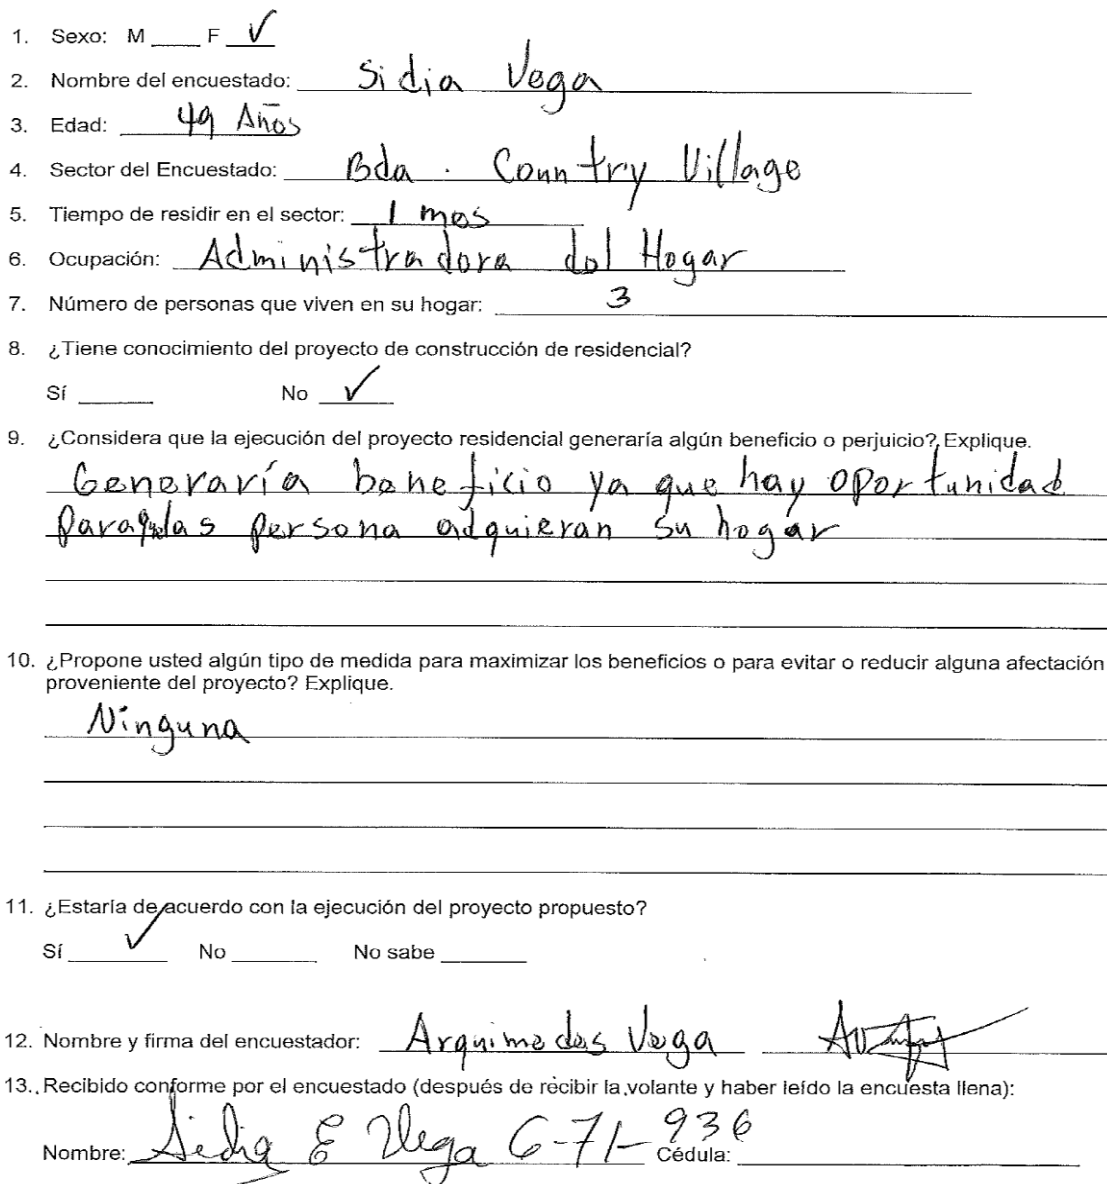 1. Sexo: M ____ F ✓
2. Nombre del encuestado: Sidia Vega
3. Edad: 49 Años
4. Sector del Encuestado: Bda. Country Village
5. Tiempo de residir en el sector: 1 mes
6. Ocupación: Administradora del Hogar
7. Número de personas que viven en su hogar: 3
8. ¿Tiene conocimiento del proyecto de construcción de residencial?
Sí ____ No ✓
9. ¿Considera que la ejecución del proyecto residencial generaría algún beneficio o perjuicio? Explique.
Generaría beneficio ya que hay oportunidad
para que las persona adquieran su hogar
10. ¿Propone usted algún tipo de medida para maximizar los beneficios o para evitar o reducir alguna afectación
proveniente del proyecto? Explique.
Ninguna
11. ¿Estaría de acuerdo con la ejecución del proyecto propuesto?
Sí ✓ No ____ No sabe ____
12. Nombre y firma del encuestador: Arquimedes Vega
13. Recibido conforme por el encuestado (después de recibir la volante y haber leído la encuesta llena):
Nombre: Sidia E Vega 6-71-936 Cédula: ____